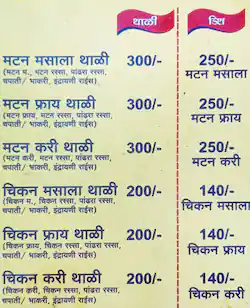 थाळी डिश
मटन मसाला थाळी 300/- 250/-
(मटन म., मटन रस्सा, पांढरा रस्सा, मटन मसाला
चपाती/ भाकरी, इंद्रायणी राईस)
मटन फ्राय थाळी 300/- 250/-
(मटन फ्राय, मटन रस्सा, पांढरा रस्सा, मटन फ्राय
चपाती/ भाकरी, इंद्रायणी राईस)
मटन करी थाळी 300/- 250/-
(मटन करी, मटन रस्सा, पांढरा रस्सा, मटन करी
चपाती/ भाकरी, इंद्रायणी राईस)
चिकन मसाला थाळी 200/- 140/-
(चिकन म., चिकन रस्सा, पांढरा रस्सा, चिकन मसाला
चपाती/ भाकरी, इंद्रायणी राईस)
चिकन फ्राय थाळी 200/- 140/-
(चिकन फ्राय, चिकन रस्सा, पांढरा रस्सा, चिकन फ्राय
चपाती/ भाकरी, इंद्रायणी राईस)
चिकन करी थाळी 200/- 140/-
(चिकन करी, चिकन रस्सा, पांढरा रस्सा, चिकन करी
चपाती/ भाकरी, इंद्रायणी राईस)